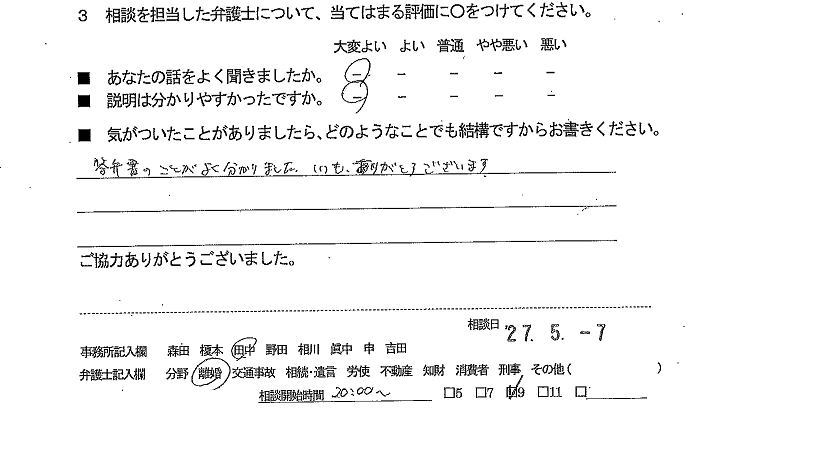 3 相談を担当した弁護士について、当てはまる評価に○をつけてください。
大変よい よい 普通 やや悪い 悪い
■ あなたの話をよく聞きましたか。 － － － － －
■ 説明は分かりやすかったですか。 － － － － －
■ 気がついたことがありましたら、どのようなことでも結構ですからお書きください。
答弁書のことがよく分かりました。いつも、ありがとうございます
ご協力ありがとうございました。
相談日 '27. 5. -7
事務所記入欄 森田 榎本 田中 野田 相川 眞中 申 吉田
弁護士記入欄 分野 離婚 交通事故 相続・遺言 労使 不動産 知財 消費者 刑事 その他( )
相談開始時間 20:00〜 □5 □7 ☑9 □11 □